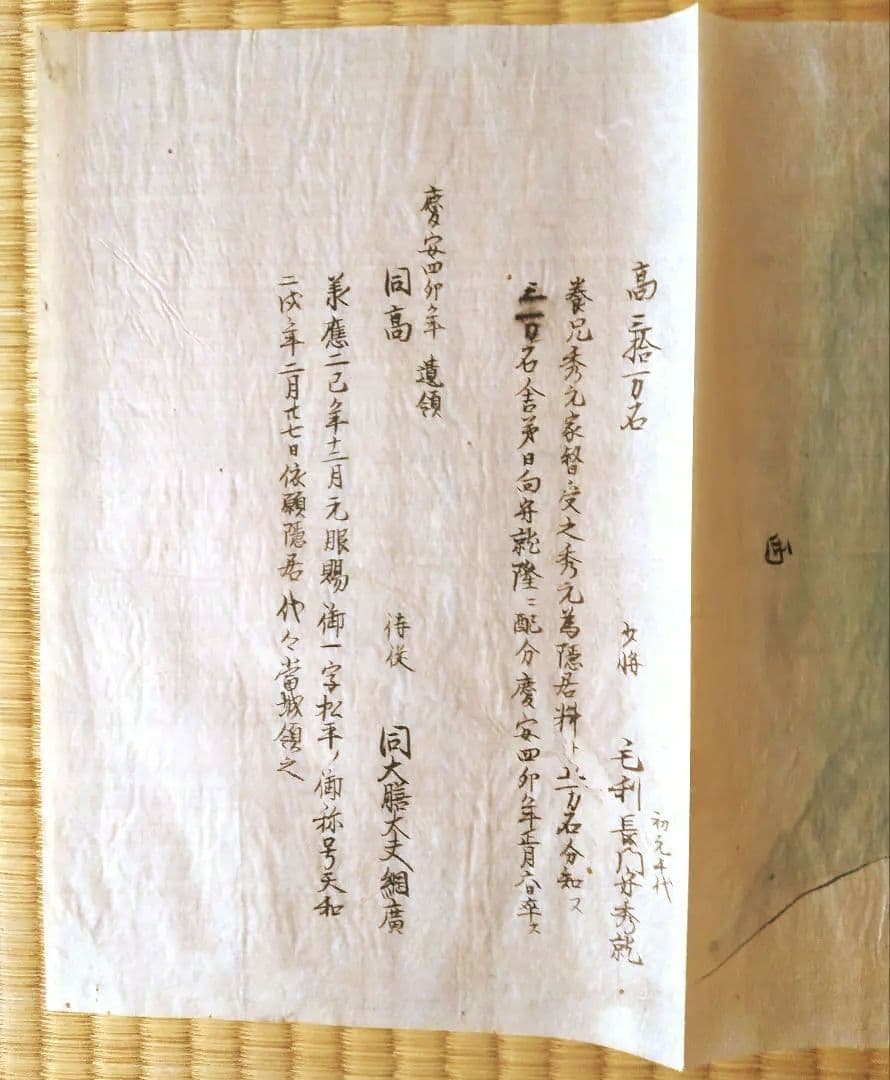 高 三拾一万石
少将
毛利長門守秀就
初元千代
養兄秀元家督受之秀元為隠居料ト 万石分知ス
三万石舎弟日向守就隆ニ配分慶安四卯年正月 卒ス
慶安四卯年 遺領
同高
侍従
同大膳大夫綱廣
承應二巳年十二月元服賜御一字松平ノ御称号天和
二戌年二月廿七日依願隠居代々當城領之